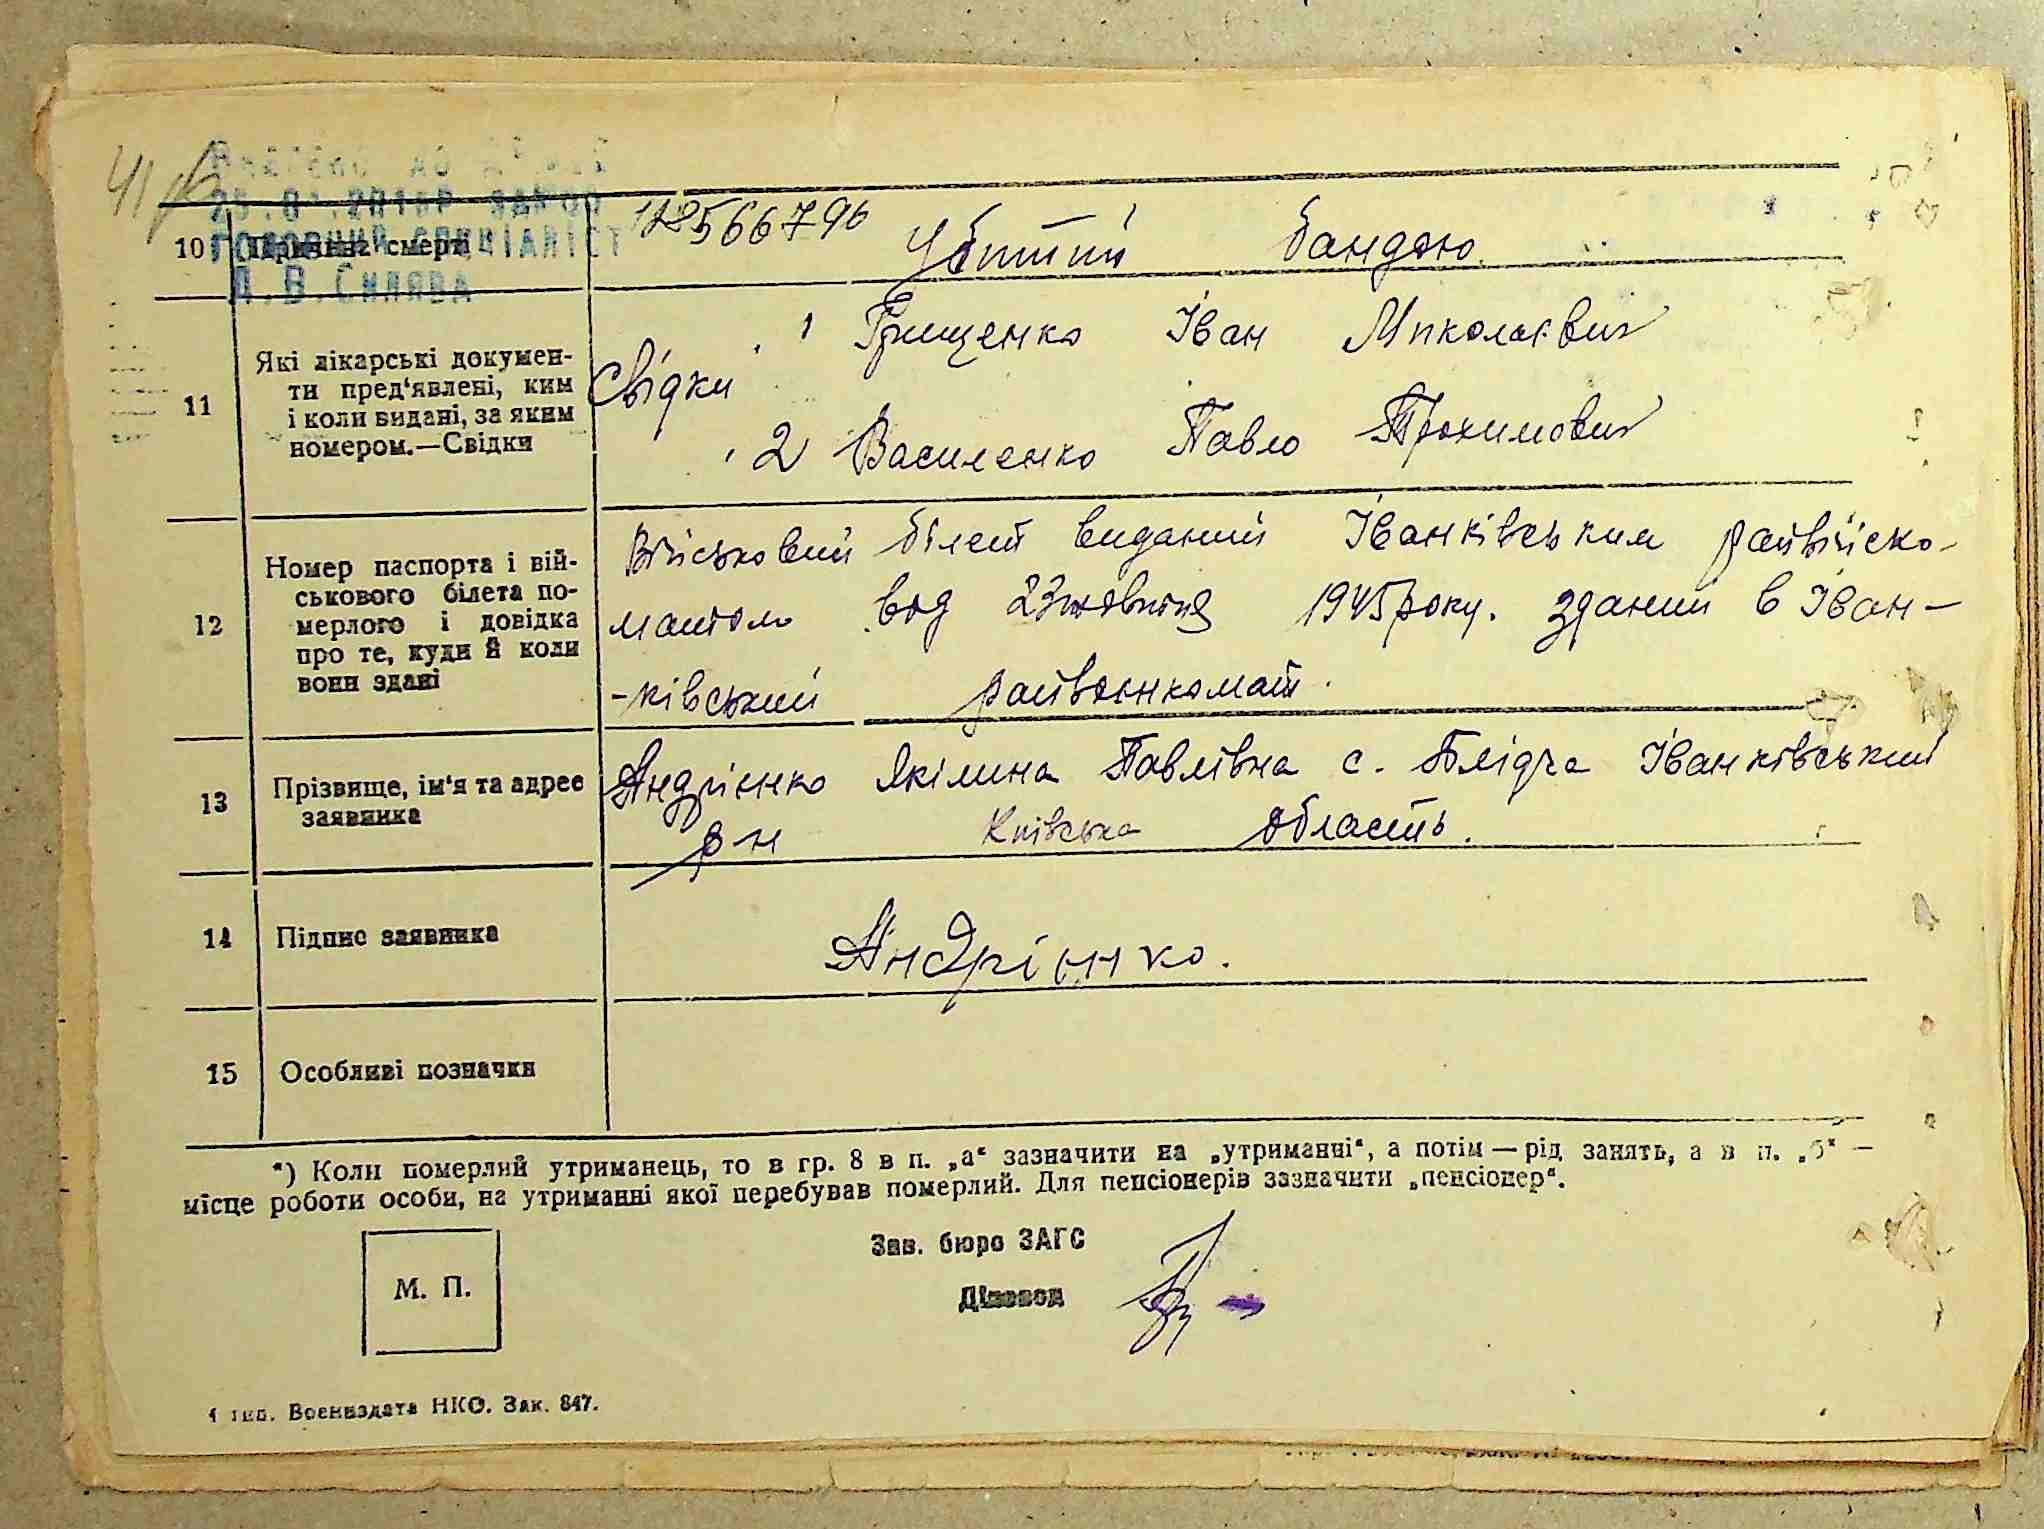 41
Внесено до Д
25.01.201 р
Головний спеціаліст
Л.В.Силява
112566796
10 Причина смерті
Убитий бандою.
11 Які лікарські докумен-
ти пред‘явлені, ким
і коли видані, за яким
номером.—Свідки
Свідки
1 Грищенко Іван Миколаєвич
2 Василенко Павло Трохимович
12 Номер паспорта і вій-
ськового білета по-
мерлого і довідка
про те, куди й коли
вони здані
Військовий білет виданий Іванківським райвійско-
матом вод 23 жовтня 1945 року. зданий в Іван-
-ківський райвоєнкомат.
13 Прізвище, ім‘я та адрес
заявника
Андрієнко Якілина Павлівна с. Блідча Іванківський
р-н Київська область.
14 Підпис заявника
Андрієнко.
15 Особливі позначки
*) Коли померлий утриманець, то в гр. 8 в п. „а“ зазначити на „утриманні“, а потім — рід занять, а в п. „б“ —
місце роботи особи, на утриманні якої перебував померлий. Для пенсіонерів зазначити „пенсіонер“.
М. П.
Зав. бюро ЗАГС
Діловод
1 тип. Воениздата НКО. Зак. 847.